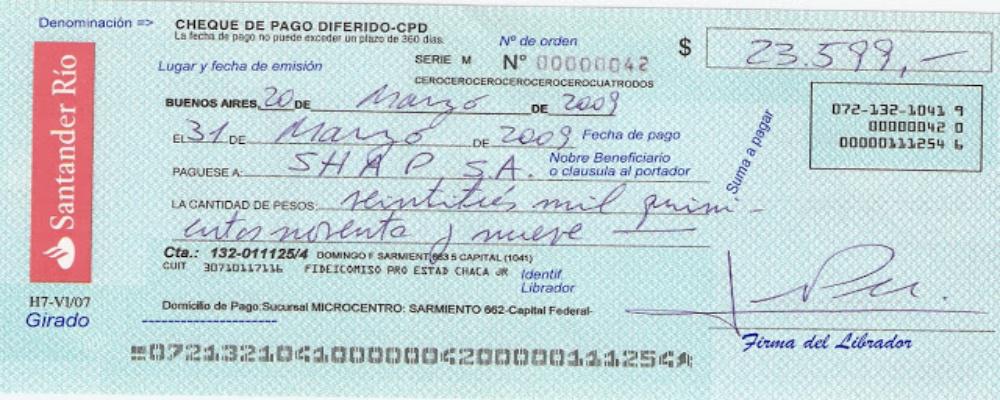 Denominación =>
CHEQUE DE PAGO DIFERIDO-CPD
La fecha de pago no puede exceder un plazo de 360 días.
Nº de orden
$ 23.599,-
Lugar y fecha de emisión
SERIE M Nº 00000042
CEROCEROCEROCEROCEROCEROCUATRODOS
BUENOS AIRES, 20 DE Marzo DE 2009
072-132-1041 9
00000042 0
00000111254 6
EL 31 DE Marzo DE 2009 Fecha de pago
Suma a pagar
PAGUESE A: SHAP S.A. Nobre Beneficiario
o clausula al portador
LA CANTIDAD DE PESOS: veintitrés mil quini-
entos noventa y nueve
Cta.: 132-011125/4 DOMINGO F SARMIENT 663 5 CAPITAL (1041)
CUIT 30710117116 FIDEICOMISO PRO ESTAD CHACA JR
Identif.
Librador
Santander Río
H7-VI/07
Girado
Domicilio de Pago:Sucursal MICROCENTRO: SARMIENTO 662-Capital Federal-
Firma del Librador
072132104100000004200000111254